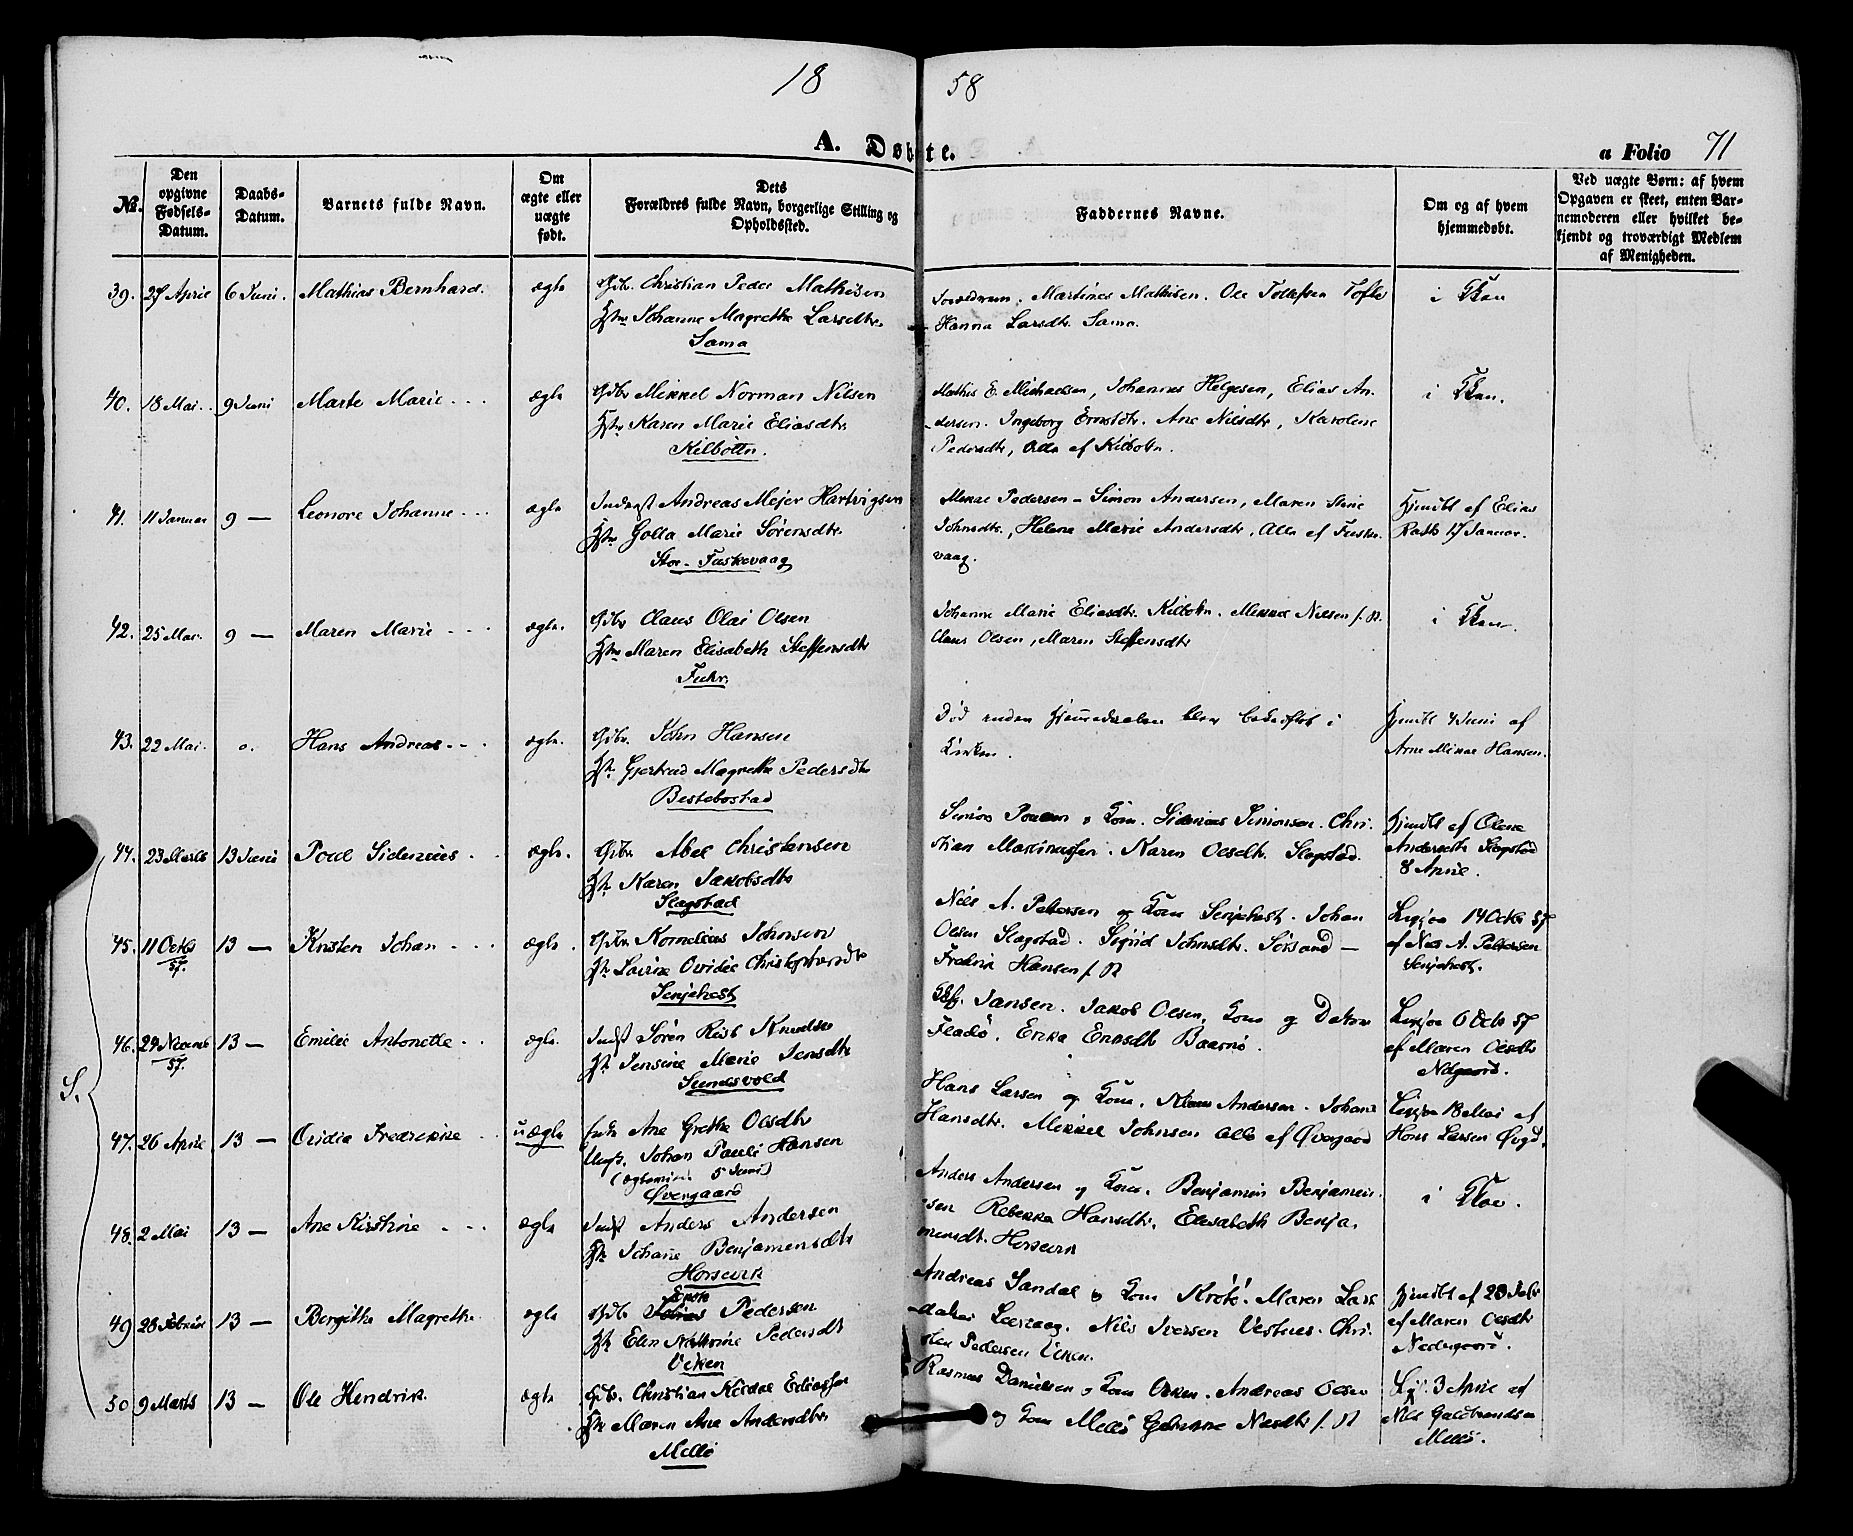 18 58
A. Døbte.
a Folio 71
No.
Den opgivne Fødsels-Datum.
Daabs-Datum.
Barnets fulde Navn.
Om ægte eller uægte født.
Dets Forældres fulde Navn, borgerlige Stilling og Opholdssted.
Faddernes Navne.
Om og af hvem hjemmedøbt.
Ved uægte Børn: af hvem Opgaven er skeet, enten Barnemoderen eller hvilket bekjendt og troværdigt Medlem af Menigheden.
39. 27 April 6 Juni. Mathias Bernhard. ægte Gdbr. Christian Peder Mathisen
Hstr Johanne Magrethe Larsdtr.
Sama
Forældrene. Martines Mathisen. Ole Tollefsen Tofte
Hanna Larsdtr. Sama.
i Kken
40. 18 Mai. 9 Juni Marte Marie ægte Gdbr Mikkel Norman Nilsen
Hstr Karen Marie Eliasdtr
Kilbottn.
Mathis E. Michaelsen, Johannes Helgesen, Elias An-
dersen. Ingeborg Ernstdtr. Ane Nilsdtr, Karoline
Pedersdtr, Alle af Kilbotn.
i Kken.
41. 11 Januar 9 — Leonore Johanne ægte Inderst Andreas Mejer Hartvigsen
Hstr Golla Marie Sørensdtr
Stor-Fuskevaag
Mikal Pedersen - Simon Andersen, Maren Stine
Johnsdtr., Helene Marie Andersdtr, Alle af Fuske-
vaag.
Hjmdbt af Elias
Rasch 17 Januar.
42. 25 Mai. 9 — Maren Marie ægte. Gdbr Claus Olai Olsen
Hstr Maren Elisabeth Steffensdtr
Fuhr.
Johanne Marie Eliasdtr. Kilbotn. Mikkel Nilsen f. N.
Claus Olsen, Maren Steffensdtr
i Kken.
43. 22 Mai. o. Hans Andreas ægte. Gdbr. John Hansen
Hstr Gjertrud Magrethe Pedersdtr
Bestebostad
Død inden Hjemmedaaben blev bekræftet i
Kirken.
Hjmdbt 4 Juni af
Arne Mikal Hansen.
S.
44. 23 Marts 13 Juni Poul Sidenius ægte. Gdbr. Abel Christensen
Hstr Karen Jakobsdtr
Slagstad
Simon Poulsen o Kone. Sidenius Simonsen. Chri-
stian Martinussen. Karen Olsdtr. Slagstad.
Hjmdbt af Olene
Andersdtr Slagstad
8 April.
45. 11 Octbr 57. 13 — Kristen Johan ægte. Gdbr. Kornelius Johnsen
Hstr Lovise Ovidie Christophersdtr
Senjehest
Nils A. Pettersen og Kone Senjehest. Johan
Olsen Slagstad. Sigrid Johnsdtr. Sørsand —
Fredrik Hansen f. N
14 Octbr 57
af Nils A. Pettersen
Senjehest.
46. 29 57. 13 — Emilie Antonette ægte. Indst Søren Rist Knudsen
Hstr Jensine Marie Jensdtr
Sundsvold
Jansen. Jakob Olsen, Kone og Datter
Fladø. Erika Eriksdtr Baarnø.
6 Octb 57
af Maren Olsdtr
Ndgaard.
47. 26 April 13 — Ovidia Fredrikke uægte Ane Grethe Olsdtr
Ungk. Johan Pauli Hansen
( 5 Juni)
Øvergaard
Hans Larsen og Kone. Klaus Andersen. Johan
Hansdtr. Mikkel Johnsen alle af Øvergaard
18 Mai af
Hans Larsen Øvgd.
48. 2 Mai 13 — Ane Kirstine ægte Indst Anders Andersen
Hstr Johane Benjaminsdtr
Horsevik
Anders Andersen og Kone. Benjamin Benjamin-
sen Rebekka Hansdtr. Elisabeth Benja-
minsdt. Horsevik
i Kken.
49 28 Februar 13 — Bergithe Magrethe ægte Gdbr Enok Pedersen
Hstr Elen Pedersdt
Viken
Andreas Sandal og Kone Kråkrø. Maren Lars-
datter Leervaag. Nils Iversen Vestnes. Chri-
sten Pedersen Viken.
Hjmdbt af 28 Febr
af Maren Olsdtr
Nedregaard.
50 9 Marts 13 — Ole Hendrik. ægte Gdbr. Christian Eliassen
Hstr Maren Ane Andersdtr
Mellø
Rasmus Danielsen og Kone Viken. Andreas Olsen
og Kone Mellø f. N
3 April af
Nils Guldbrandsen
Mellø.